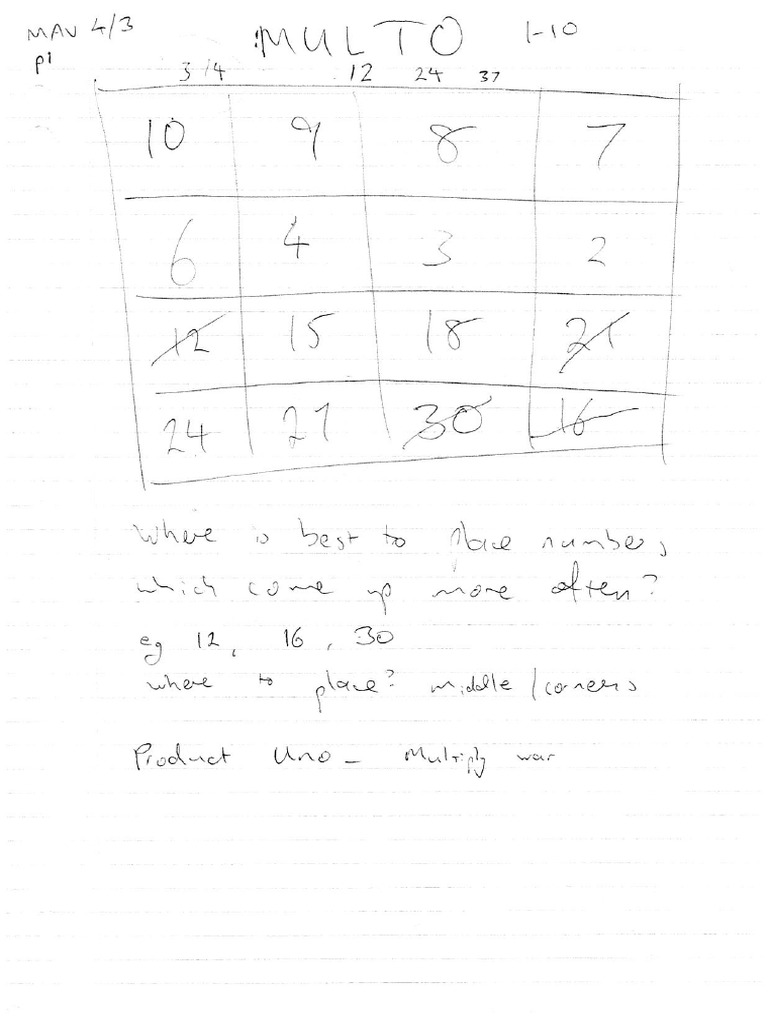 MAV 4/3 MULTO 1-10
p1
3 14 12 24 37
10 9 8 7
6 4 3 2
12 15 18 21
24 27 30 16
Where is best to place numbers
which come up more often?
eg 12, 16, 30
where to place? middle/corners
Product Uno - Multiply war